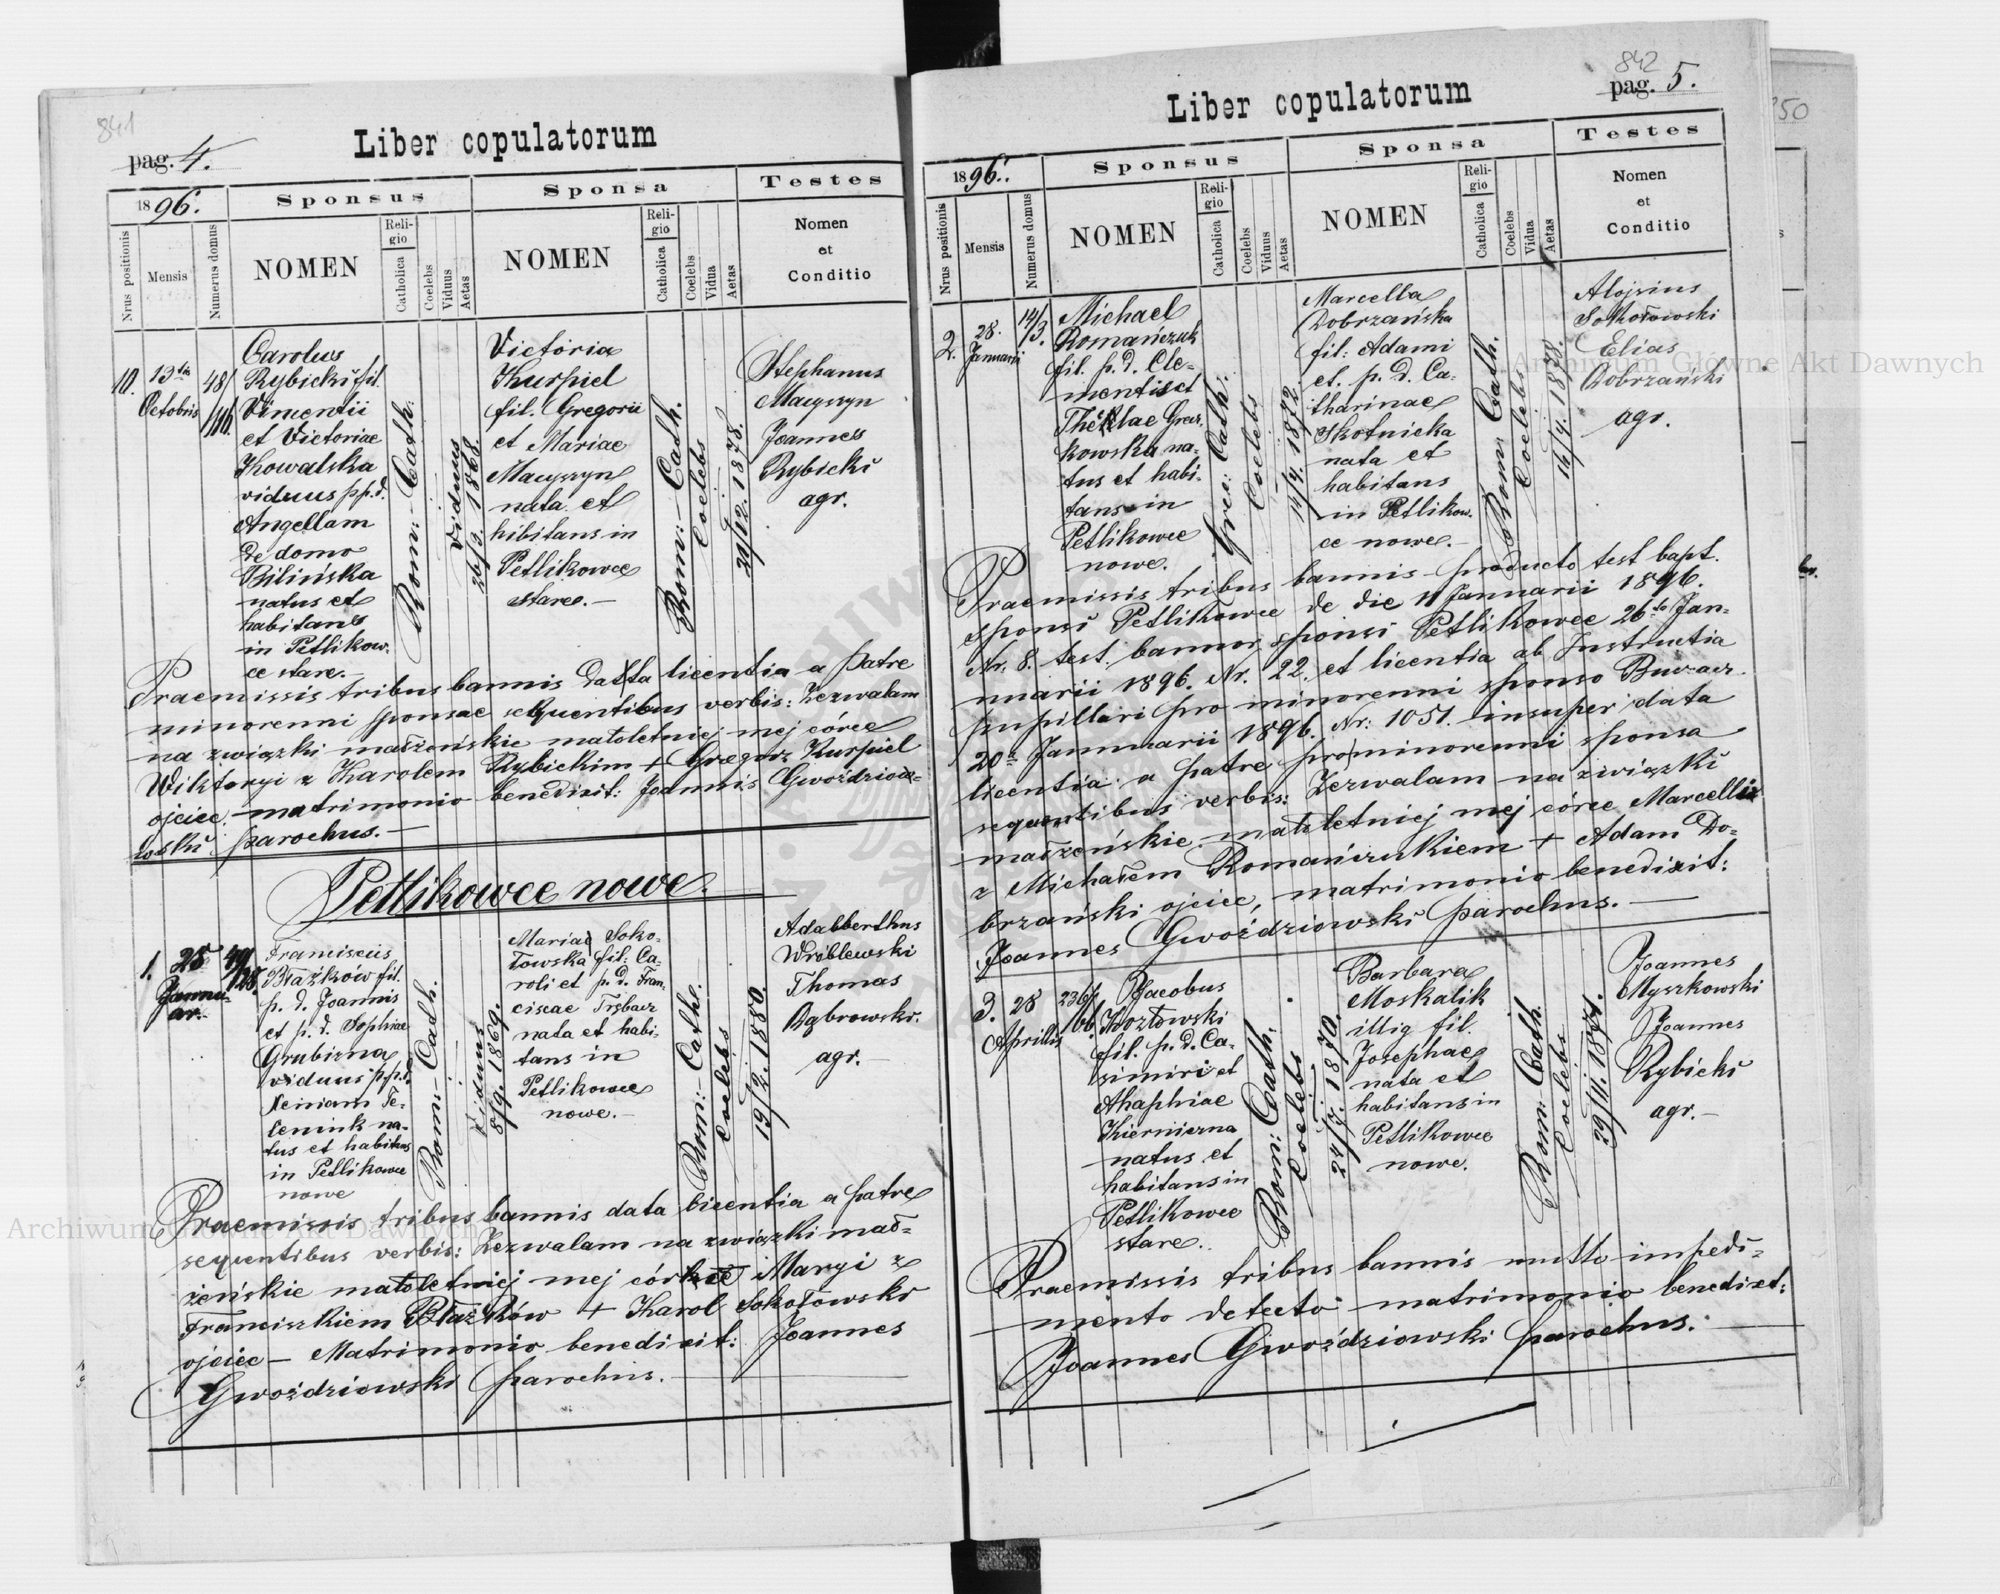 841
pag. 4.
Liber copulatorum
1896.
Sponsus
Sponsa
Testes
Nrus positionis
Mensis
Numerus domus
NOMEN
Religio
Catholica
Coelebs
Viduus
Aetas
NOMEN
Religio
Catholica
Coelebs
Vidua
Aetas
Nomen
et
Conditio
10.
13tia
Octobris
48/
116.
Carolus
Rybicki fil.
Vincentii
et Victoriae
Kowalska
viduus p.p.d.
Angellam
de domo
Bilińska
natus et
habitans
in Petlikow-
ce stare.-
Rom:- Cath.
Viduus
26/3. 1868.
Victoria
Kurpiel
fil. Gregorii
et Mariae
Macyszyn
nata et
hibitans in
Petlikowce
stare.-
Rom:- Cath.
Coelebs
29/12. 1878.
Stephanus
Macyszyn
Joannes
Rybicki
agr.
Praemissis tribus bannis data licentia a patre
minorenni sponsae sequentibus verbis: Zezwalam
na związki małżeńskie małoletniej mej córce
Wiktoryi z Karolem Rybickim + Grzegorz Kurpiel
ojciec, matrimonio benedixit: Joannis Gwoździow-
ski parochus.-
Petlikowce nowe.
1.
28
Januar.
49/
128.
Franciscus
Błażków fil.
p. d. Joannis
et p. d. Sophiae
Grubizna
viduus p.p.d.
natus et habitans
in Petlikowce
nowe
Rom:- Cath.
Viduus
8/9. 1869.
Maria Soko-
łowska fil: Ca-
roli et p. d. Fran-
ciscae Trębacz
nata et habi-
tans in
Petlikowce
nowe.-
Rom:- Cath.
Coelebs
19/2. 1880.
Adalberthus
Wróblewski
Thomas
Dąbrowski.
agr.-
Praemissis tribus bannis data licentia a patre
sequentibus verbis: Zezwalam na związki mał-
żeńskie małoletniej mej córce Maryi z
Franciszkiem Błażków + Karol Sokołowski
ojciec - Matrimonio benedixit: Joannes
Gwoździowski parochus.
842
pag. 5.
Liber copulatorum
1896.
Sponsus
Sponsa
Testes
Nrus positionis
Mensis
Numerus domus
NOMEN
Religio
Catholica
Coelebs
Viduus
Aetas
NOMEN
Religio
Catholica
Coelebs
Vidua
Aetas
Nomen
et
Conditio
2.
28.
Januarii
14/
3.
Michael
Romańczuk
fil. p. d. Cle-
mentis et
Theklae Grusz-
kowska na-
tus et habi-
tans in
Petlikowce
nowe.
Grec: Cath:
Coelebs
14/4. 1872.
Marcella
Dobrzańska
fil: Adami
et. p. d. Ca-
tharinae
Skotnicka
nata et
habitans
in Petlikow-
ce nowe.-
Rom: Cath.
Coelebs
16/4. 1878.
Alojsius
Sokołowski
Elias
Dobrzański
agr.
Praemissis tribus bannis producto test bapt.
sponsi Petlikowce de die 11 Januarii 1896.
Nr. 8. test. bannor. sponsi Petlikowce 26to Jan-
nuarii 1896. Nr. 22. et licentia ab Instructia
pupillari pro minorenni sponso Buczacz
20 Jannuarii 1896. Nr: 1051. insuper data
licentia a patre pro minorenni sponsa
sequentibus verbis: Zezwalam na związki
małżeńskie małoletniej mej córce Marcelli
z Michałem Romańczukiem + Adam Do-
brzański ojciec, matrimonio benedixit:
Joannes Gwoździowski parochus.-
3.
28
Aprilis
236/
66.
Jacobus
Kozłowski
fil. p. d. Ca-
simiri et
Ahaphiae
Kiernizna
natus et
habitans in
Petlikowce
stare.
Rom: Cath.
Coelebs
24/7. 1870.
Barbara
Moskalik
illig fil.
Josephae
nata et
habitans in
Petlikowce
nowe.
Rom: Cath.
Coelebs
29/11. 1874.
Joannes
Myszkowski
Joannes
Rybicki
agr.-
Praemissis tribus bannis nullo impedi-
mento detecto matrimonio benedixit:
Joannes Gwoździowski parochus.
Archiwum Główne Akt Dawnych
Archiwum Główne Akt Dawnych